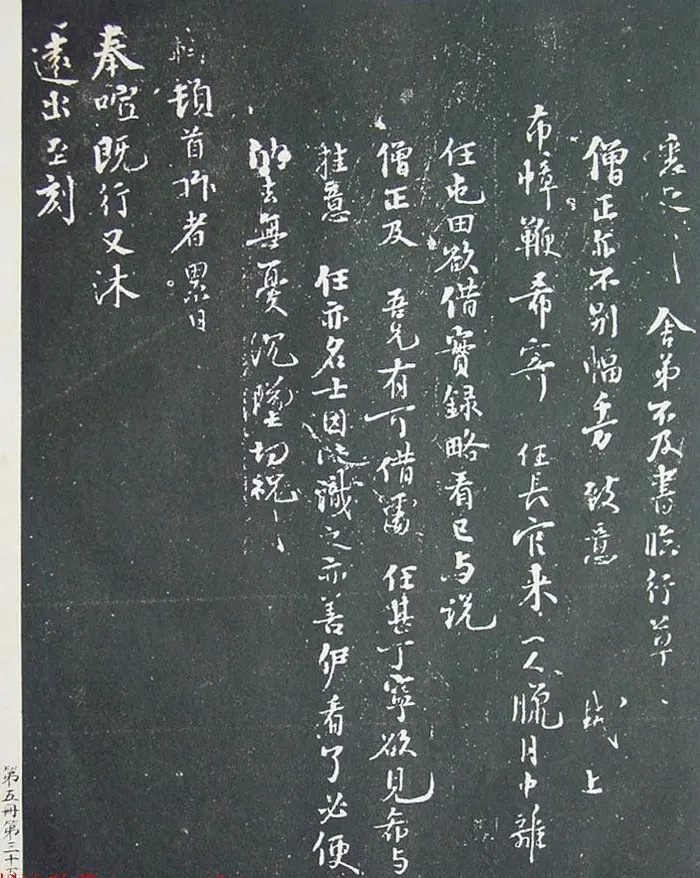 舍弟不及書臨行草〻
僧正亦不别幅 致意 軾上
布幛鞭希寄 任長官來一人臘月中離
任屯田欲借實録略看已与説
僧正及 吾兄有可借 任甚丁寧欲見希与
推意 任亦名士因 識之亦善伊看了必便
納去無憂沉墜切祝〻
軾頓首昨者累日
奉喧既行又沐
遠出至刻
第五冊第三十